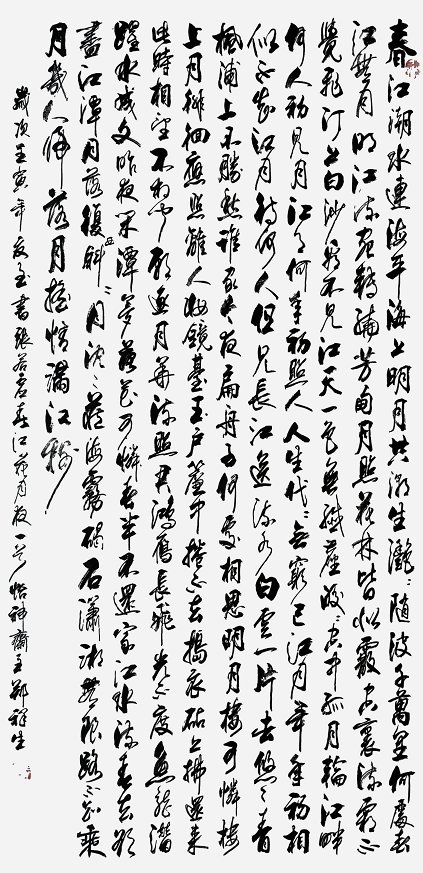 春江潮水連海平海上明月共潮生灔〻隨波千萬里何處春
江無月明江流宛轉繞芳甸月照花林皆似霰空裏流霜不
覺飛汀上白沙看不見江天一色無纖塵皎〻空中孤月輪江畔
何人初見月江月何年初照人人生代〻無窮已江月年年祇相
似不知江月待何人但見長江送流水白雲一片去悠〻青
楓浦上不勝愁誰家今夜扁舟子何處相思明月樓可憐樓
上月徘徊應照離人妝鏡臺玉戶簾中捲不去搗衣砧上拂還來
此時相望不相聞願逐月華流照君鴻雁長飛光不度魚龍潛
躍水成文昨夜閒潭夢落花可憐春半不還家江水流春去欲
盡江潭月落復西斜〻月沉〻藏海霧碣石瀟湘無限路不知乘
月幾人歸落月搖情滿江樹
歲次壬寅年夏至書張若虛春江花月夜一首怡神齋主鄭祥生